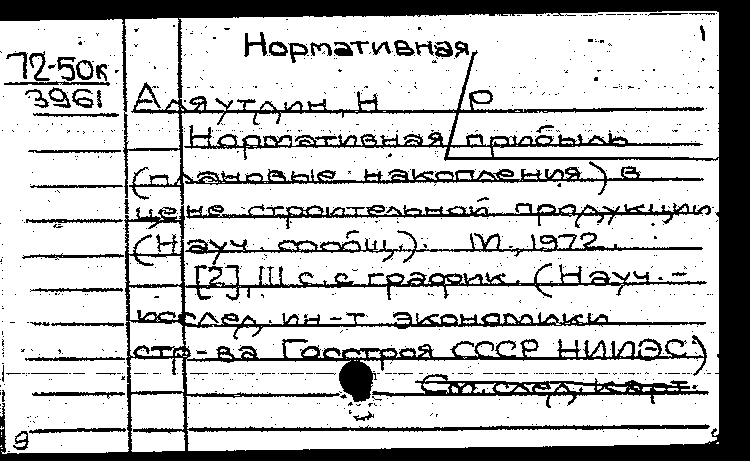 Нормативная
1
72-50к
3961
Аляутдин, Н Р
Нормативная прибыль
(плановые накопления) в
цене строительной продукции.
(Науч. сообщ.). М., 1972.
[2], III с. с график. (Науч.-
исслед. ин-т экономики
стр-ва Госстроя СССР НИИЭС)
См. след. карт.